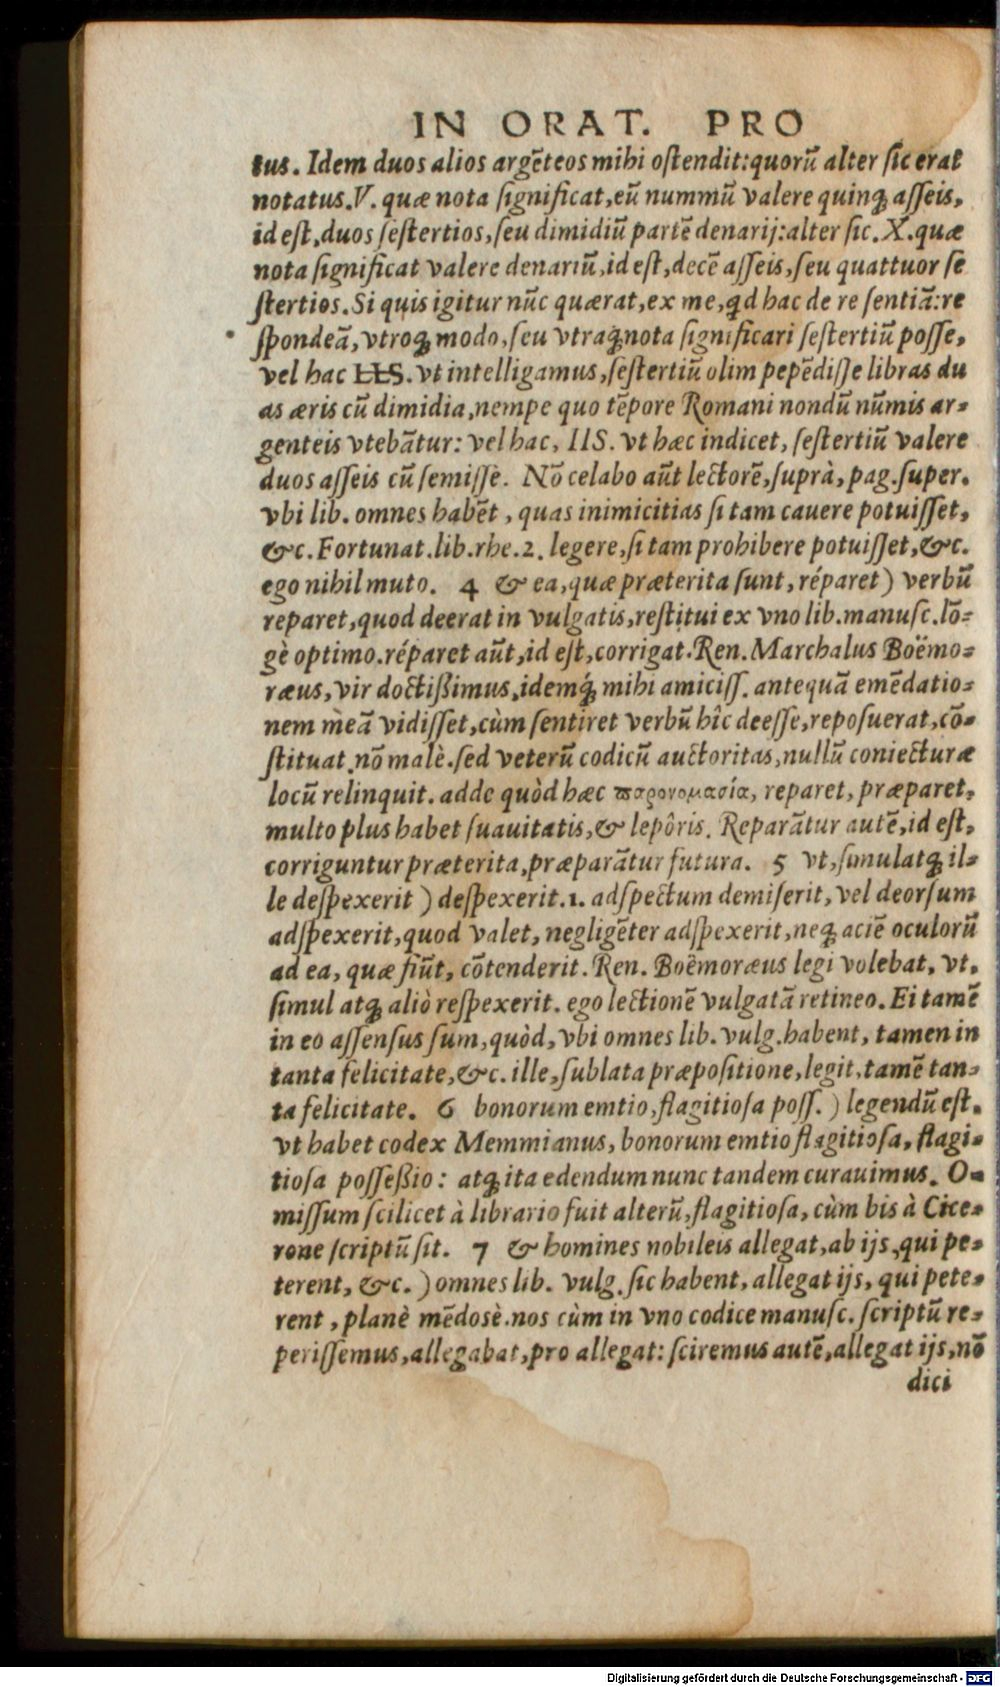 IN ORAT. PRO
tus. Idem duos alios argẽteos mihi ostendit: quorũ alter sic erat
notatus. V. quæ nota significat, eũ nummũ valere quinq; asseis,
id est, duos sestertios, seu dimidiũ partẽ denarij: alter sic. X. quæ
nota significat valere denariũ, id est, decẽ asseis, seu quattuor se
stertios. Si quis igitur nũc quærat, ex me, qd hac de re sentiã: re
spondeã, vtroq; modo, seu vtraq; nota significari sestertiũ posse,
vel hac LLS. vt intelligamus, sestertiũ olim pepẽdisse libras du
as æris cũ dimidia, nempe quo tẽpore Romani nondũ nũmis ar-
genteis vtebãtur: vel hac, IIS. vt hæc indicet, sestertiũ valere
duos asseis cũ semisse. Nõ celabo aũt lectorẽ, suprà, pag. super.
vbi lib. omnes habẽt, quas inimicitias si tam cauere potuisset,
&c. Fortunat. lib. rhe. 2. legere, si tam prohibere potuisset, &c.
ego nihil muto. 4 & ea, quæ præterita sunt, réparet) verbũ
reparet, quod deerat in vulgatis, restitui ex vno lib. manusc. lõ-
gè optimo. réparet aũt, id est, corrigat. Ren. Marchalus Boëmo-
ræus, vir doctißimus, idemq́; mihi amiciss. antequã emẽdatio-
nem meã vidisset, cùm sentiret verbũ hîc deesse, reposuerat, cõ-
stituat. nõ malè. sed veterũ codicũ auctoritas, nullũ coniecturæ
locũ relinquit. adde quòd hæc παρονομασία, reparet, præparet,
multo plus habet suauitatis, & lepôris. Reparãtur autẽ, id est,
corriguntur præterita, præparãtur futura. 5 vt, simulatq; il-
le despexerit) despexerit. 1. adspectum demiserit, vel deorsum
adspexerit, quod valet, negligẽter adspexerit, neq; aciẽ oculorũ
ad ea, quæ fiũt, cõtenderit. Ren. Boëmoræus legi volebat, vt,
simul atq; aliò respexerit. ego lectionẽ vulgatã retineo. Ei tamẽ
in eo assensus sum, quòd, vbi omnes lib. vulg. habent, tamen in
tanta felicitate, &c. ille, sublata præpositione, legit, tamẽ tan-
ta felicitate. 6 bonorum emtio, flagitiosa poss.) legendũ est.
vt habet codex Memmianus, bonorum emtio flagitiosa, flagi-
tiosa possessio: atq; ita edendum nunc tandem curauimus. O-
missum scilicet à librario fuit alterũ, flagitiosa, cùm bis à Cice-
rone scriptũ sit. 7 & homines nobileis allegat, ab ijs, qui pe-
terent, &c.) omnes lib. vulg. sic habent, allegat ijs, qui pete-
rent, planè mẽdosè. nos cùm in vno codice manusc. scriptũ re-
perissemus, allegabat, pro allegat: sciremus autẽ, allegat ijs, nõ
dici
Digitalisierung gefördert durch die Deutsche Forschungsgemeinschaft - DFG